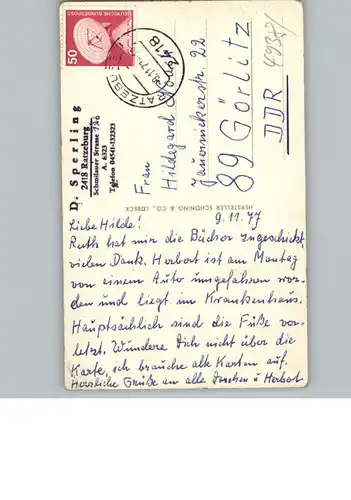 50
DEUTSCHE BUNDESPOST
RATZEBURG
2418
D. Sperling
2418 Ratzeburg
Schmilauer Strasse 126
A. 6323
Telefon 04541-132223
Frau
Hildegard
Jauernickerstr. 22
89 Görlitz
DDR
HERSTELLER SCHÖNING & CO., LÜBECK
9.11.77
Liebe Hilde!
Ruth hat mir die Bücher zugeschickt,
vielen Dank. Herbert ist am Montag
von einem Auto umgefahren wor-
den und liegt im Krankenhaus.
Hauptsächlich sind die Füße ver-
letzt. Wundere Dich nicht über die
Karte, ich brauche alte Karten auf.
Herzliche Grüße an alle u Herbert